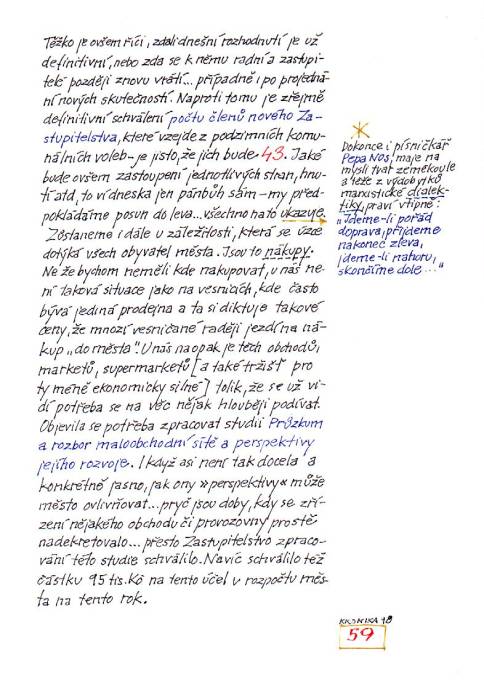 Těžko je ovšem říci, zda li dnešní rozhodnutí je už
definitivní, nebo zda se k němu radní a zastupi-
telé později znovu vrátí... případně i po projedná-
ní nových skutečností. Naproti tomu je zřejmě
definitivní schválení počtu členů nového Za-
stupitelstva, které vzejde z podzimních komu-
nálních voleb - je jisto, že jich bude 43. Jaké
bude ovšem zastoupení jednotlivých stran, hnu-
tí atd, to ví dneska jen pánbůh sám - my před-
pokládáme posun do leva... všechno na to ukazuje.
Zůstaneme i dále u záležitosti, která se úzce
dotýká všech obyvatel města. Jsou to nákupy.
Ne že bychom neměli kde nakupovat, u nás ne-
ní taková situace jako na vesnicích, kde často
bývá jediná prodejna a ta si diktuje takové
ceny, že mnozí vesničané raději jezdí na ná-
kup „do města". U nás naopak je těch obchodů,
marketů, supermarketů [a také tržišť pro
ty méně ekonomicky silné] tolik, že se už vi-
dí potřeba se na věc nějak hlouběji podívat.
Objevila se potřeba zpracovat studii Průzkum
a rozbor maloobchodní sítě a perspektivy
jejího rozvoje. I když asi není tak docela a
konkrétně jasno, jak ony »perspektivy« může
město ovlivňovat... pryč jsou doby, kdy se zří-
zení nějakého obchodu či provozovny prostě
nadekretovalo... přesto Zastupitelstvo zpraco-
vání této studie schválilo. Navíc schválilo též
částku 95 tis. Kč na tento účel v rozpočtu měs-
ta na tento rok.
Dokonce i písničkář
Pepa Nos, maje na
mysli tvar zeměkoule
a též z výdobytků
marxistické dialek-
tiky, praví vtipně:
„Jdeme-li pořád
doprava, přijdeme
nakonec zleva,
jdeme-li nahoru,
skončíme dole..."
KRONIKA 98
59